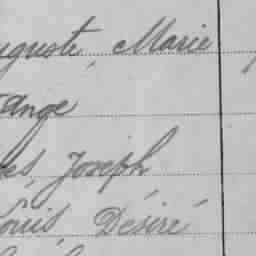 uguste, Marie
ange
es, Joseph
ouis, Désiré